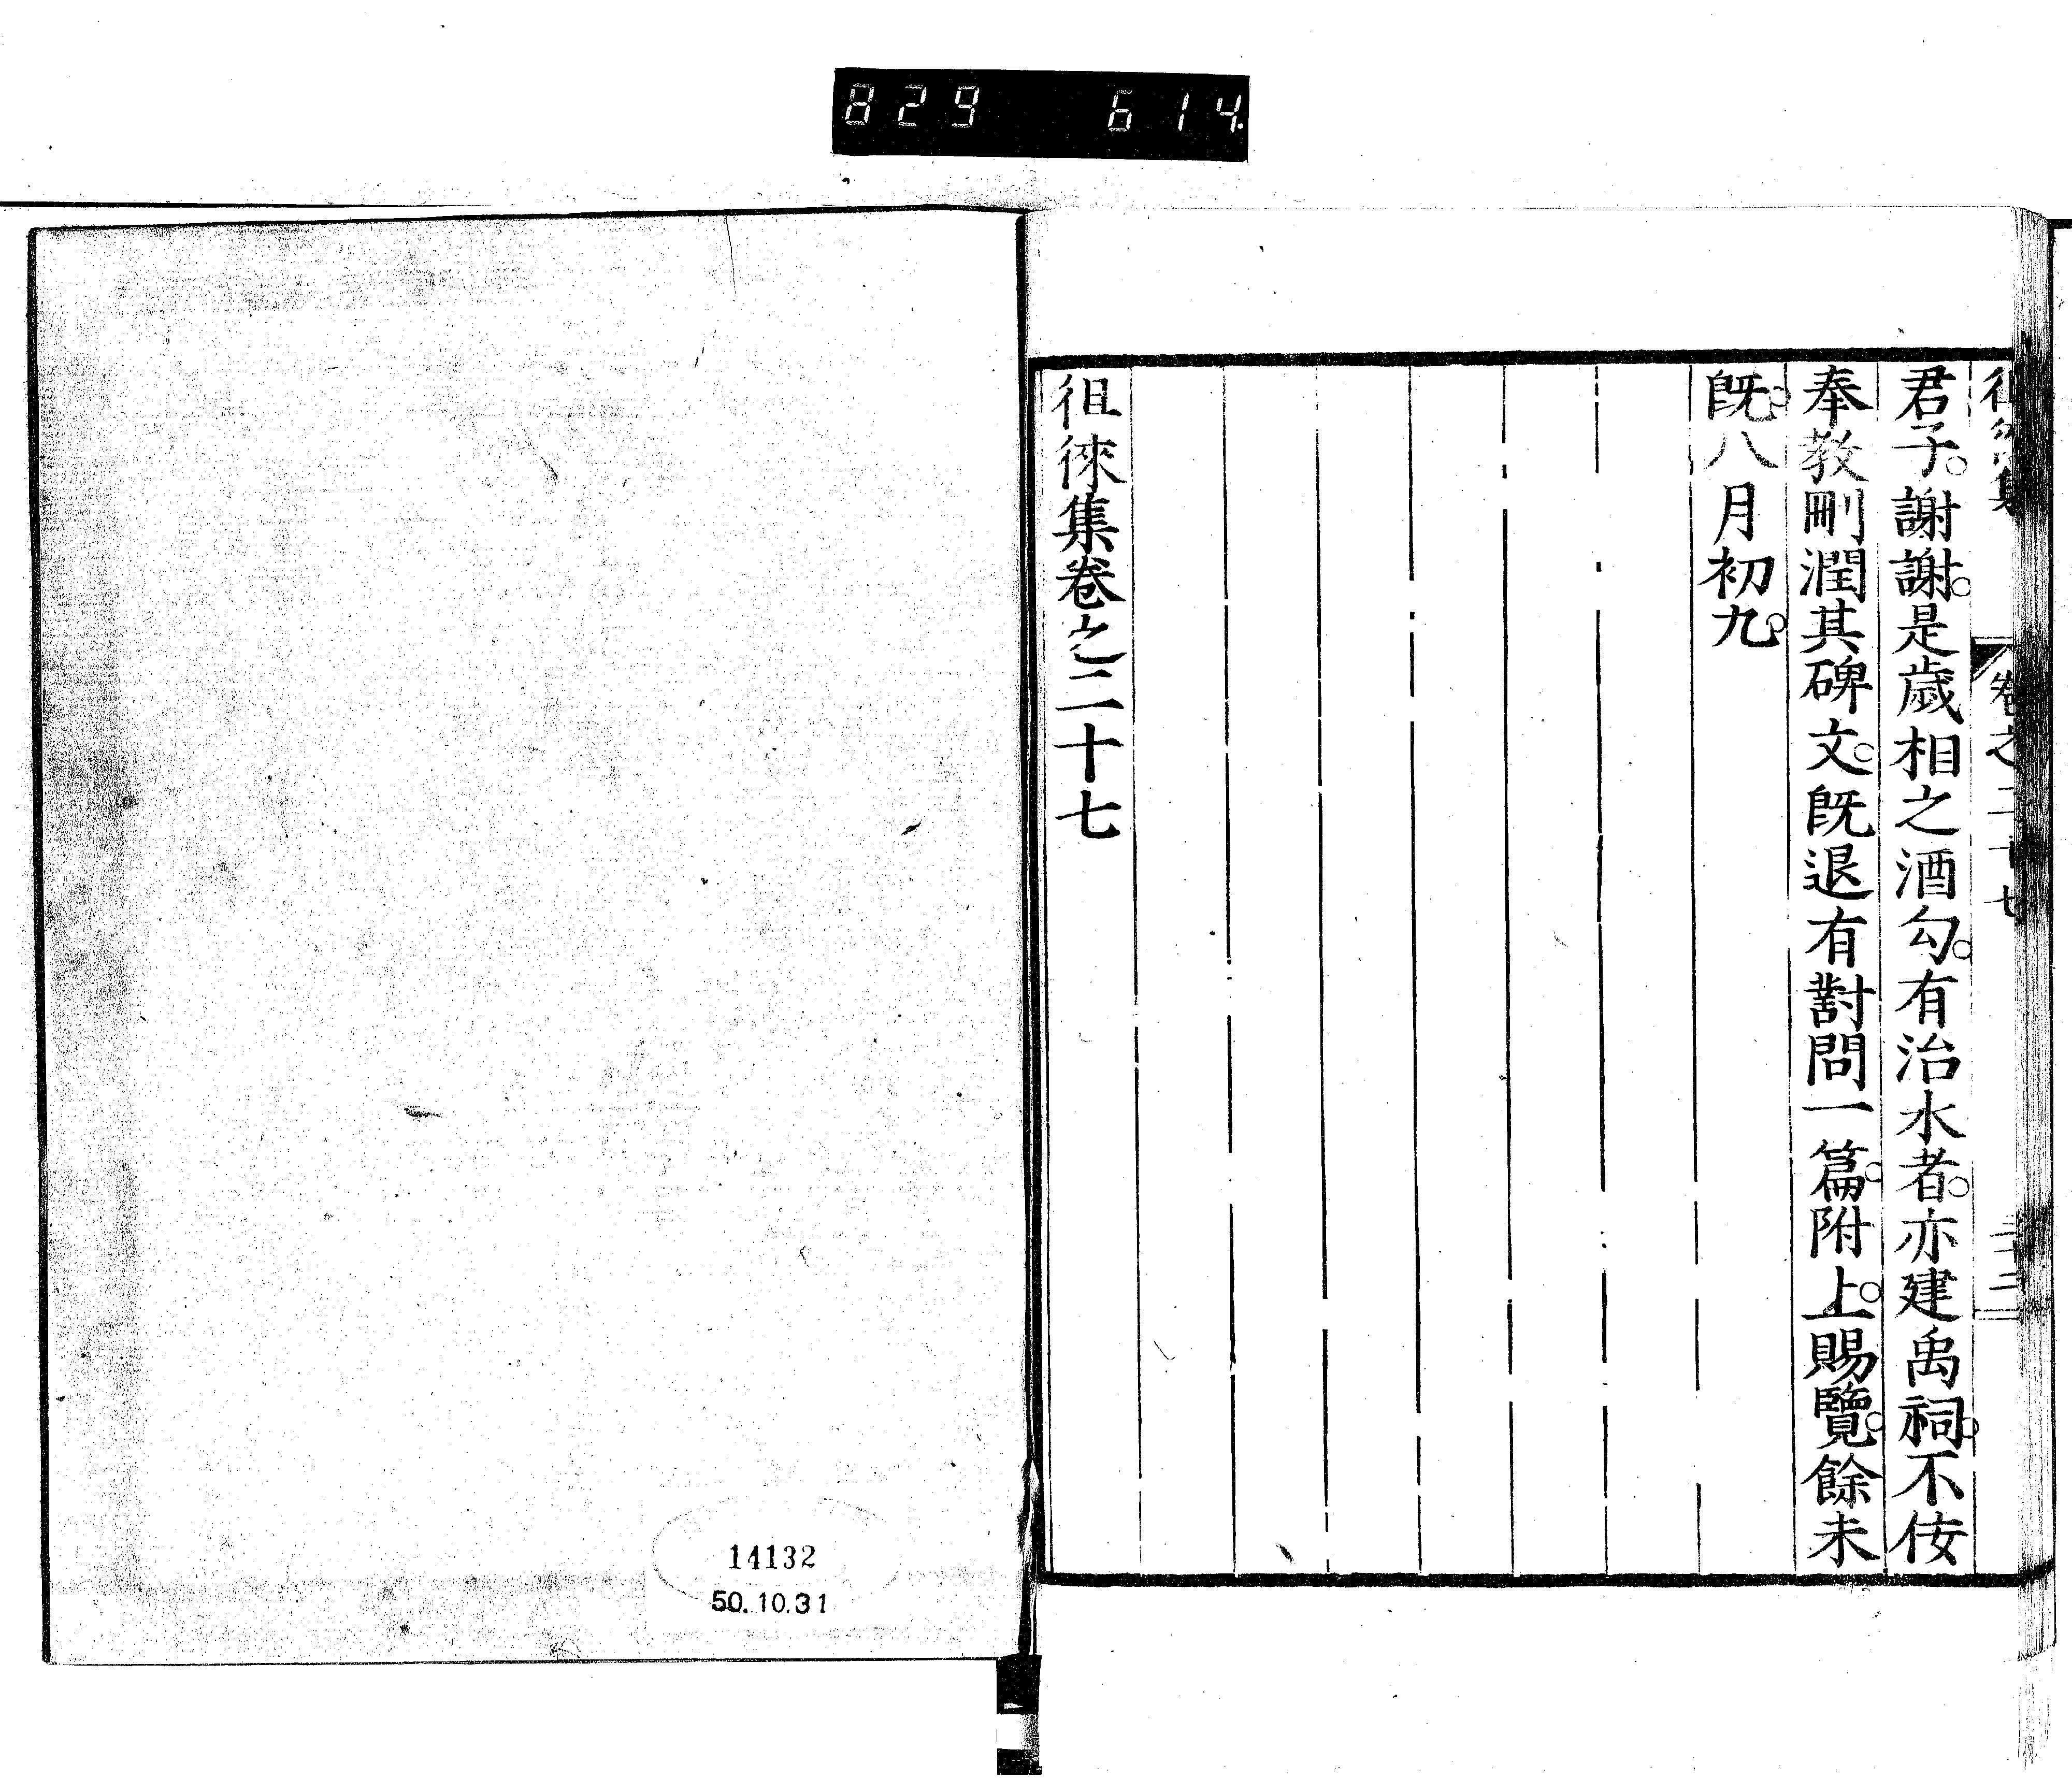 829 614.
君子。謝謝。是歲相之酒勾。有治水者。亦建禹祠。不佞
奉教刪潤其碑文。既退有對問一篇。附上。賜覽。餘未
既。八月初九。
徂徠集卷之二十七
14132
50.10.31